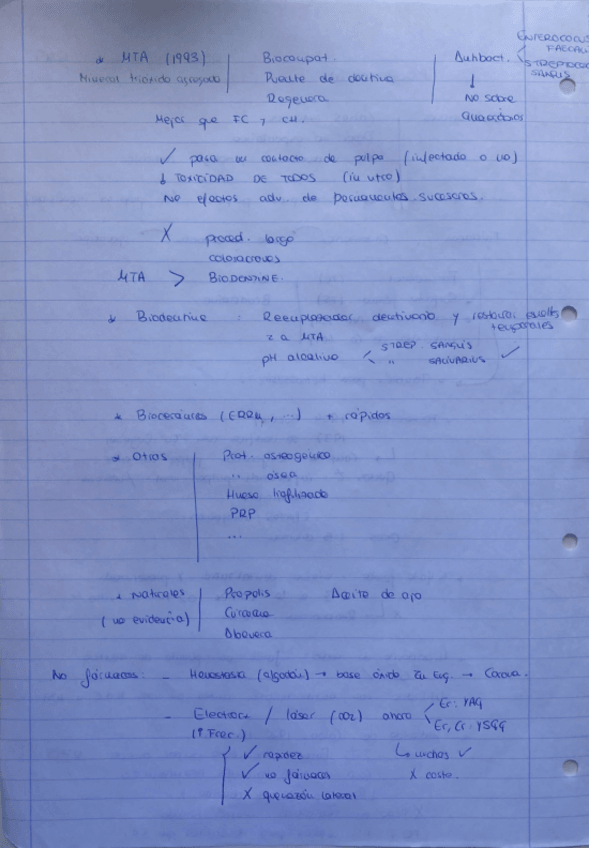 * MTA (1993) | Biocompat. | Antibact. < ENTEROCOCUS FAECALI
STREPTOCOC SANGUIS
Mineral trióxido agregado | Puente de dentina ↓
Regenera | No sobre
Mejor que FC y CH. anaerobios
✓ pasa en contacto de pulpa (infectada o no)
↓ TOXICIDAD DE TODOS (in vitro)
No efectos adv. de permanentes sucesores.
X proced. largo
coloraciones
MTA > BIODENTINE.
* Biodentine : Reemplazador dentinario y restaura
temporales
≈ a MTA
pH alcalino < STREP SANGUIS
" SALIVARIUS ✓
* Biocerámicas (ERRM, ...) + rápidos
* Otros | Prot. osteogénica
" ósea
Hueso liofilizado
PRP
...
* Naturales | Propolis Aceite de ajo
(no evidencia) | Cúrcuma
Aloevera
No fármacos: - Hemostasia (algodón) → base óxido Zn Eug. → Corona.
- Electroc / láser (CO2) ahora < Er: YAG
Er, Cr: YSGG
(↑ Frec.)
✓ rapidez ↳ muchas ✓
✓ no fármacos X coste.
X quemazón lateral